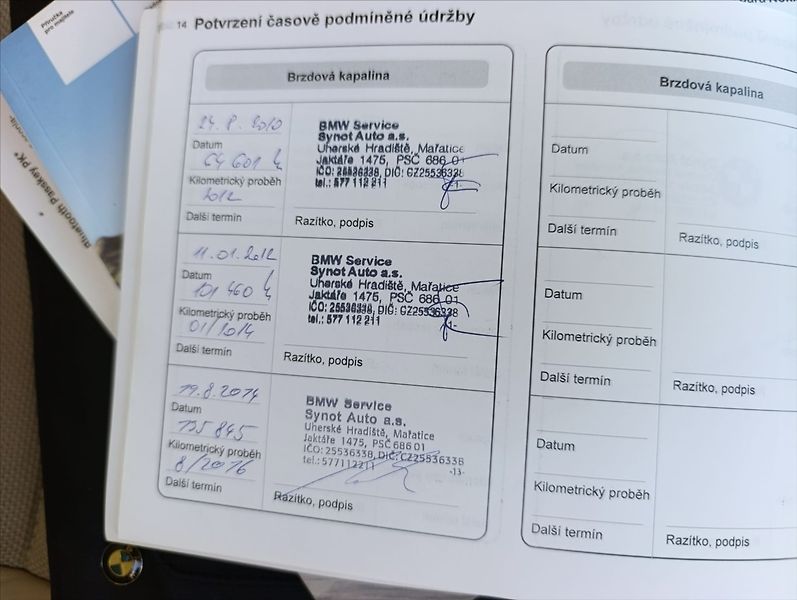 Příručka
pro majitele
Bluetooth Passkey PK*
14 Potvrzení časově podmíněné údržby
Brzdová kapalina
24. 8. 2010
Datum
64 601 k
Kilometrický proběh
2012
Další termín
BMW Service
Synot Auto a.s.
Uherské Hradiště, Mařatice
Jaktáře 1475, PSČ 686 01
IČO: 25536338, DIČ: CZ25536338
tel.: 577 112 211
-1-
Razítko, podpis
11.01.2012
Datum
101 460 k
Kilometrický proběh
01/2014
Další termín
BMW Service
Synot Auto a.s.
Uherské Hradiště, Mařatice
Jaktáře 1475, PSČ 686 01
IČO: 25536338, DIČ: CZ25536338
tel.: 577 112 211
-1-
Razítko, podpis
19.8.2014
Datum
135 845
Kilometrický proběh
8/2016
Další termín
BMW Service
Synot Auto a.s.
Uherské Hradiště, Mařatice
Jaktáře 1475, PSČ 686 01
IČO: 25536338, DIČ: CZ25536338
tel.: 577112211
-13-
Razítko, podpis
Brzdová kapalina
Datum
Kilometrický proběh
Další termín
Razítko, podpis
Datum
Kilometrický proběh
Další termín
Razítko, podpis
Datum
Kilometrický proběh
Další termín
Razítko, podpis